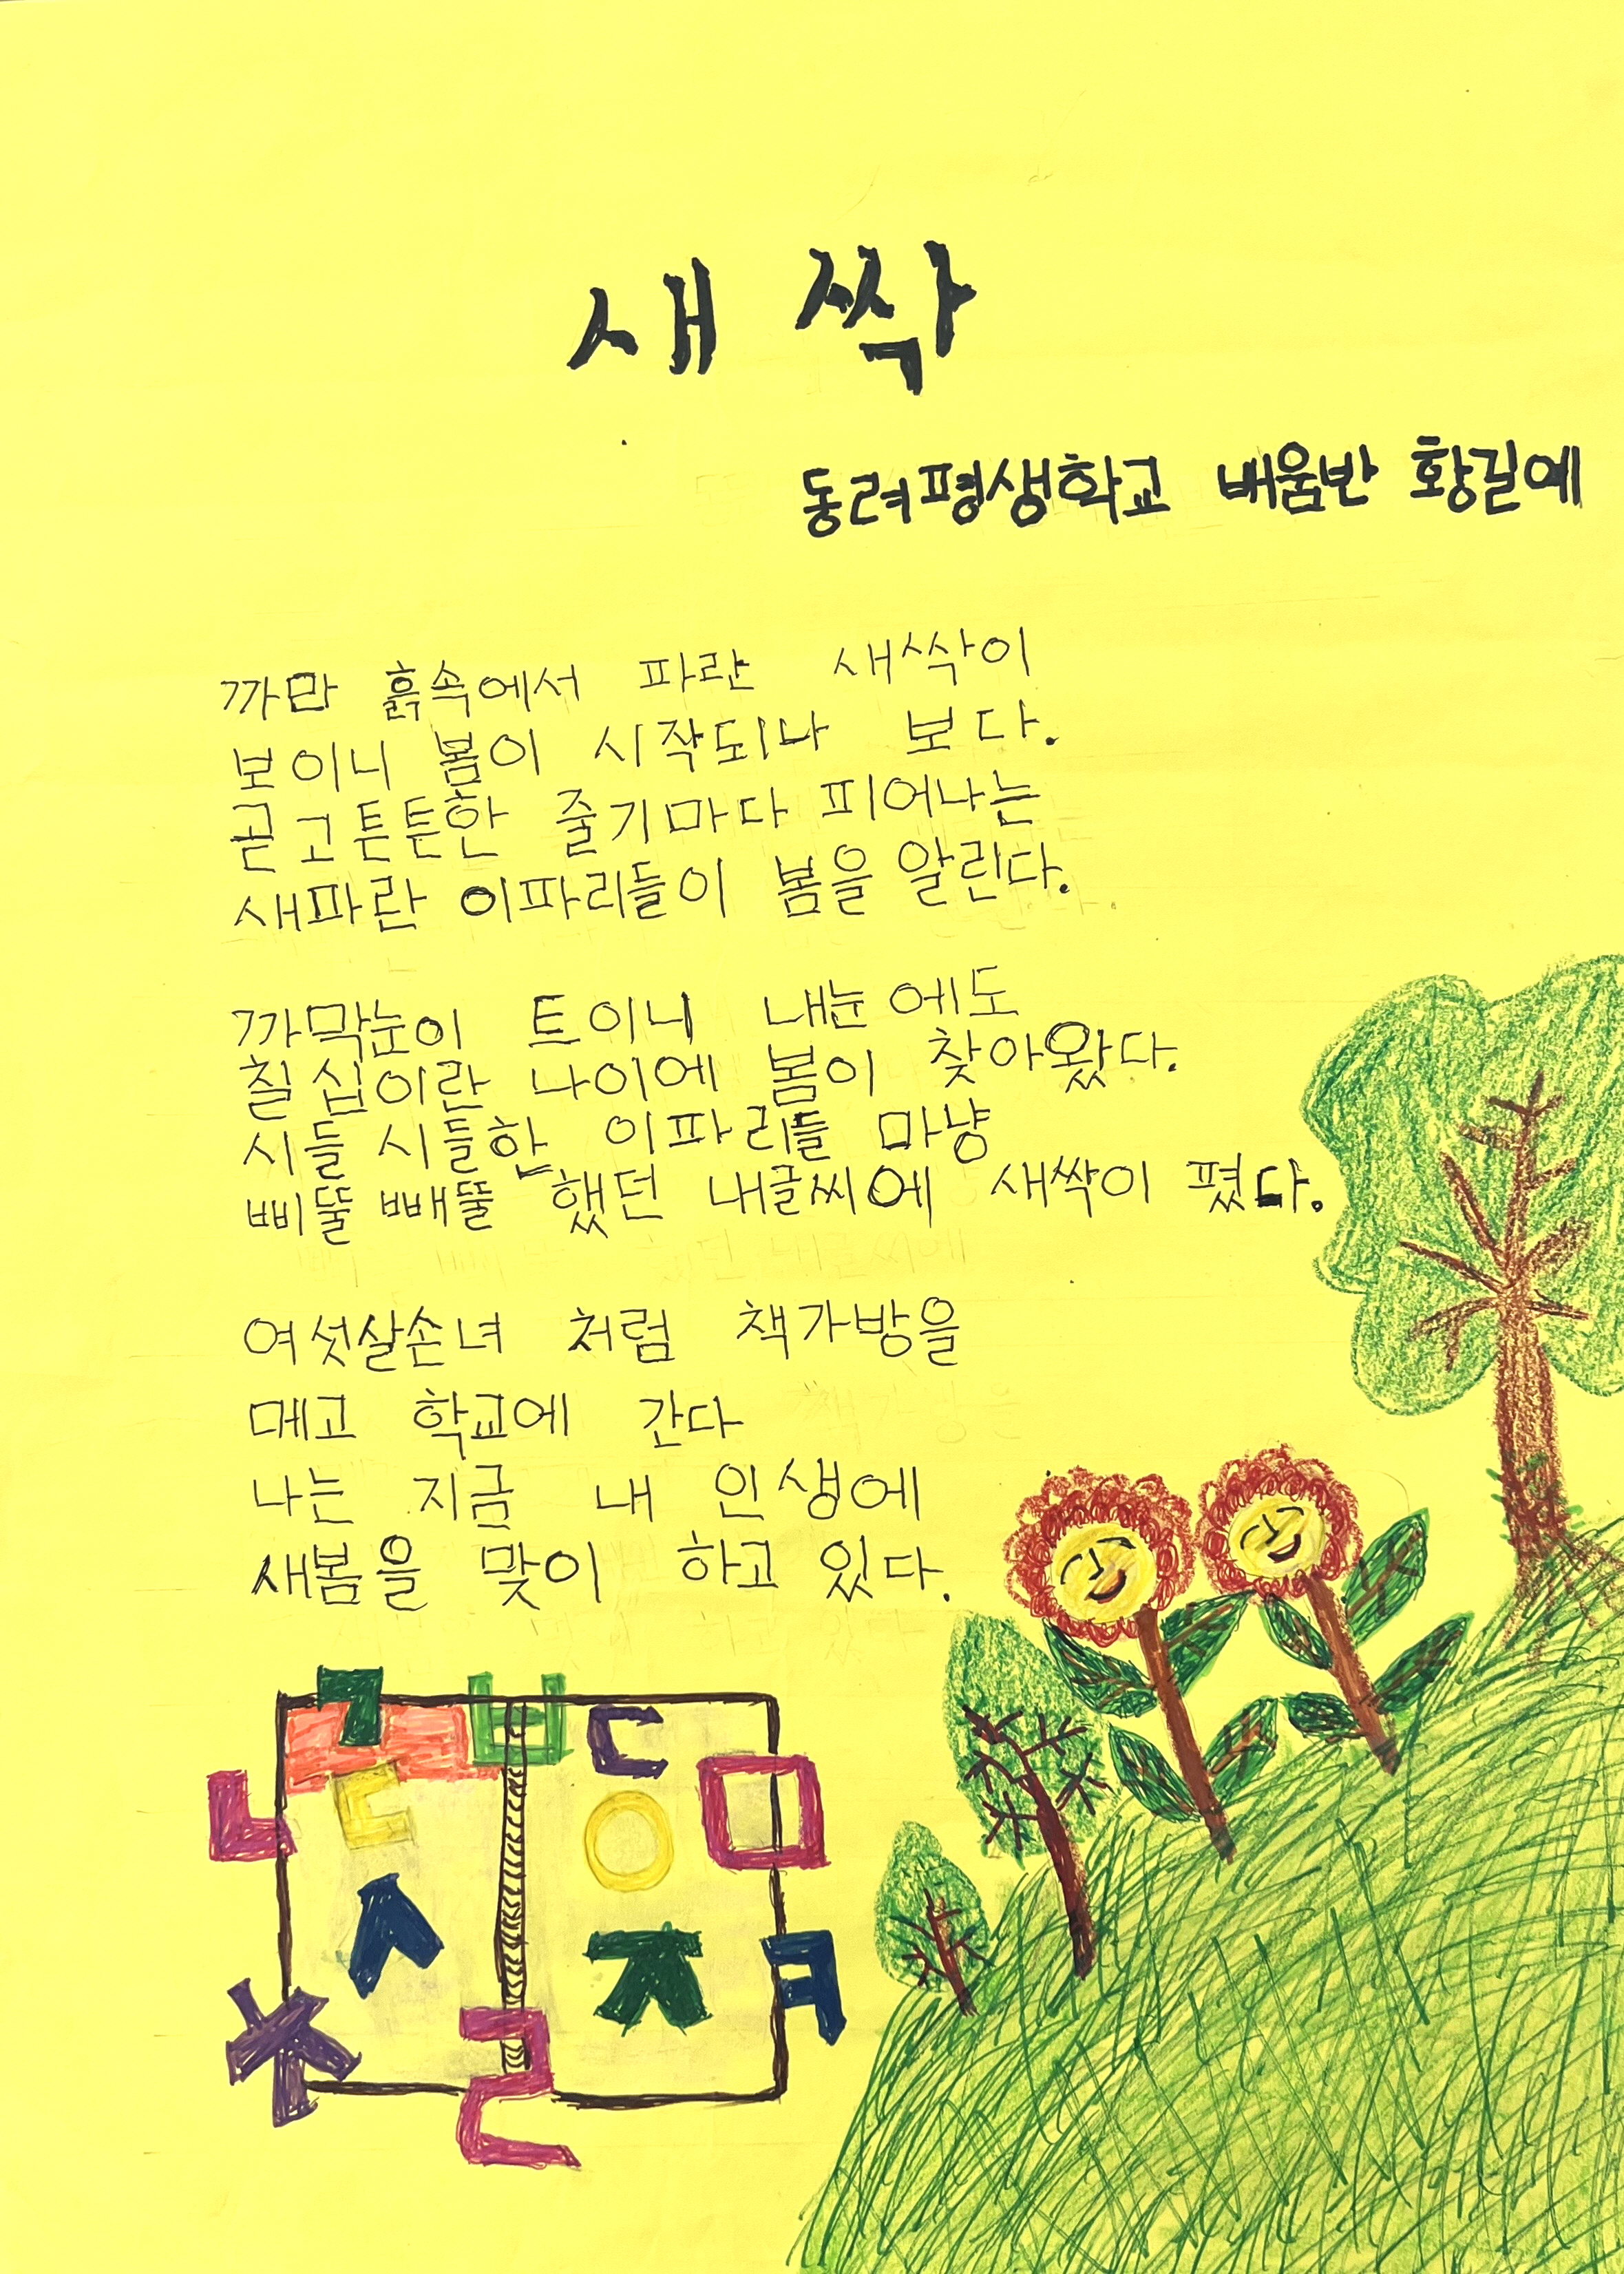 새싹
동려평생학교 배움반 황길예
까만 흙속에서 파란 새싹이
보이니 봄이 시작되나 보다.
곧고튼튼한 줄기마다 피어나는
새파란 이파리들이 봄을 알린다.
까막눈이 트이니 내눈에도
칠십이란 나이에 봄이 찾아왔다.
시들시들한 이파리들 마냥
삐뚤빼뚤 했던 내글씨에 새싹이 폈다.
여섯살손녀 처럼 책가방을
메고 학교에 간다
나는 지금 내 인생에
새봄을 맞이 하고 있다.
ㄱ ㅂ ㄷ
ㄴ ㅌ ㅇ ㅁ
ㅅ ㅈ ㅋ
ㅊ ㄹ